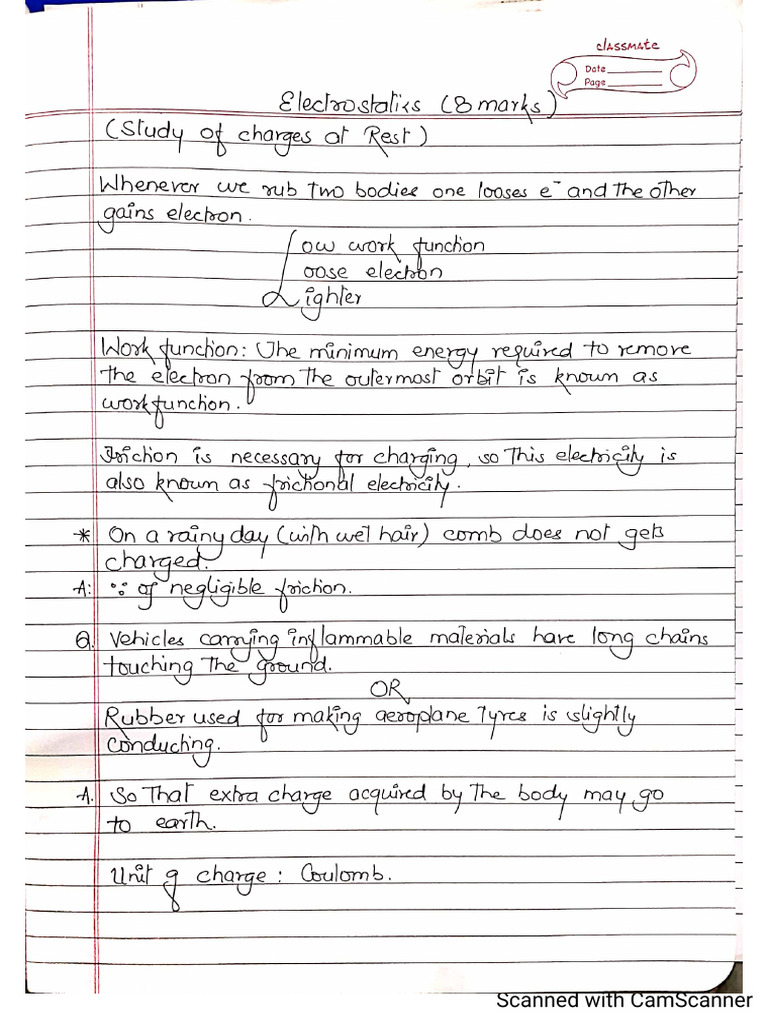 classmate
Date
Page
Electrostatics (8 marks)
(Study of charges at Rest)
Whenever we rub two bodies one looses e⁻ and the other
gains electron.
Low work function
oose electron
ighter
Work function: The minimum energy required to remove
the electron from the outermost orbit is known as
workfunction.
Friction is necessary for charging, so this electricity is
also known as frictional electricity.
* On a rainy day (with wet hair) comb does not gets
charged.
A: ∵ of negligible friction.
Q. Vehicles carrying inflammable materials have long chains
touching the ground.
OR
Rubber used for making aeroplane tyres is slightly
conducting.
A. So that extra charge acquired by the body may go
to earth.
Unit of charge : Coulomb.
Scanned with CamScanner